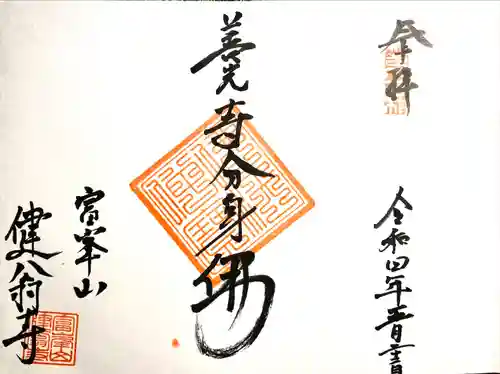 奉拝
令和四年五月
善光寺分身佛
富峯山
健翁寺